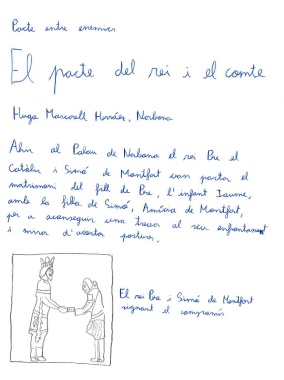 Pacte entre enemics
El pacte del rei i el comte
Hugo Marcuell Herráez, Narbona
Ahir al Palau de Narbona el rei Pere el
Catòlic i Simó de Montfort van pactar el
matrimoni del fill de Pere, l'infant Jaume,
amb la filla de Simó, Amícia de Montfort,
per a aconseguir una treva al seu enfrontament
i mirar d'acostar postures.
El rei Pere i Simó de Montfort
signant el compromís